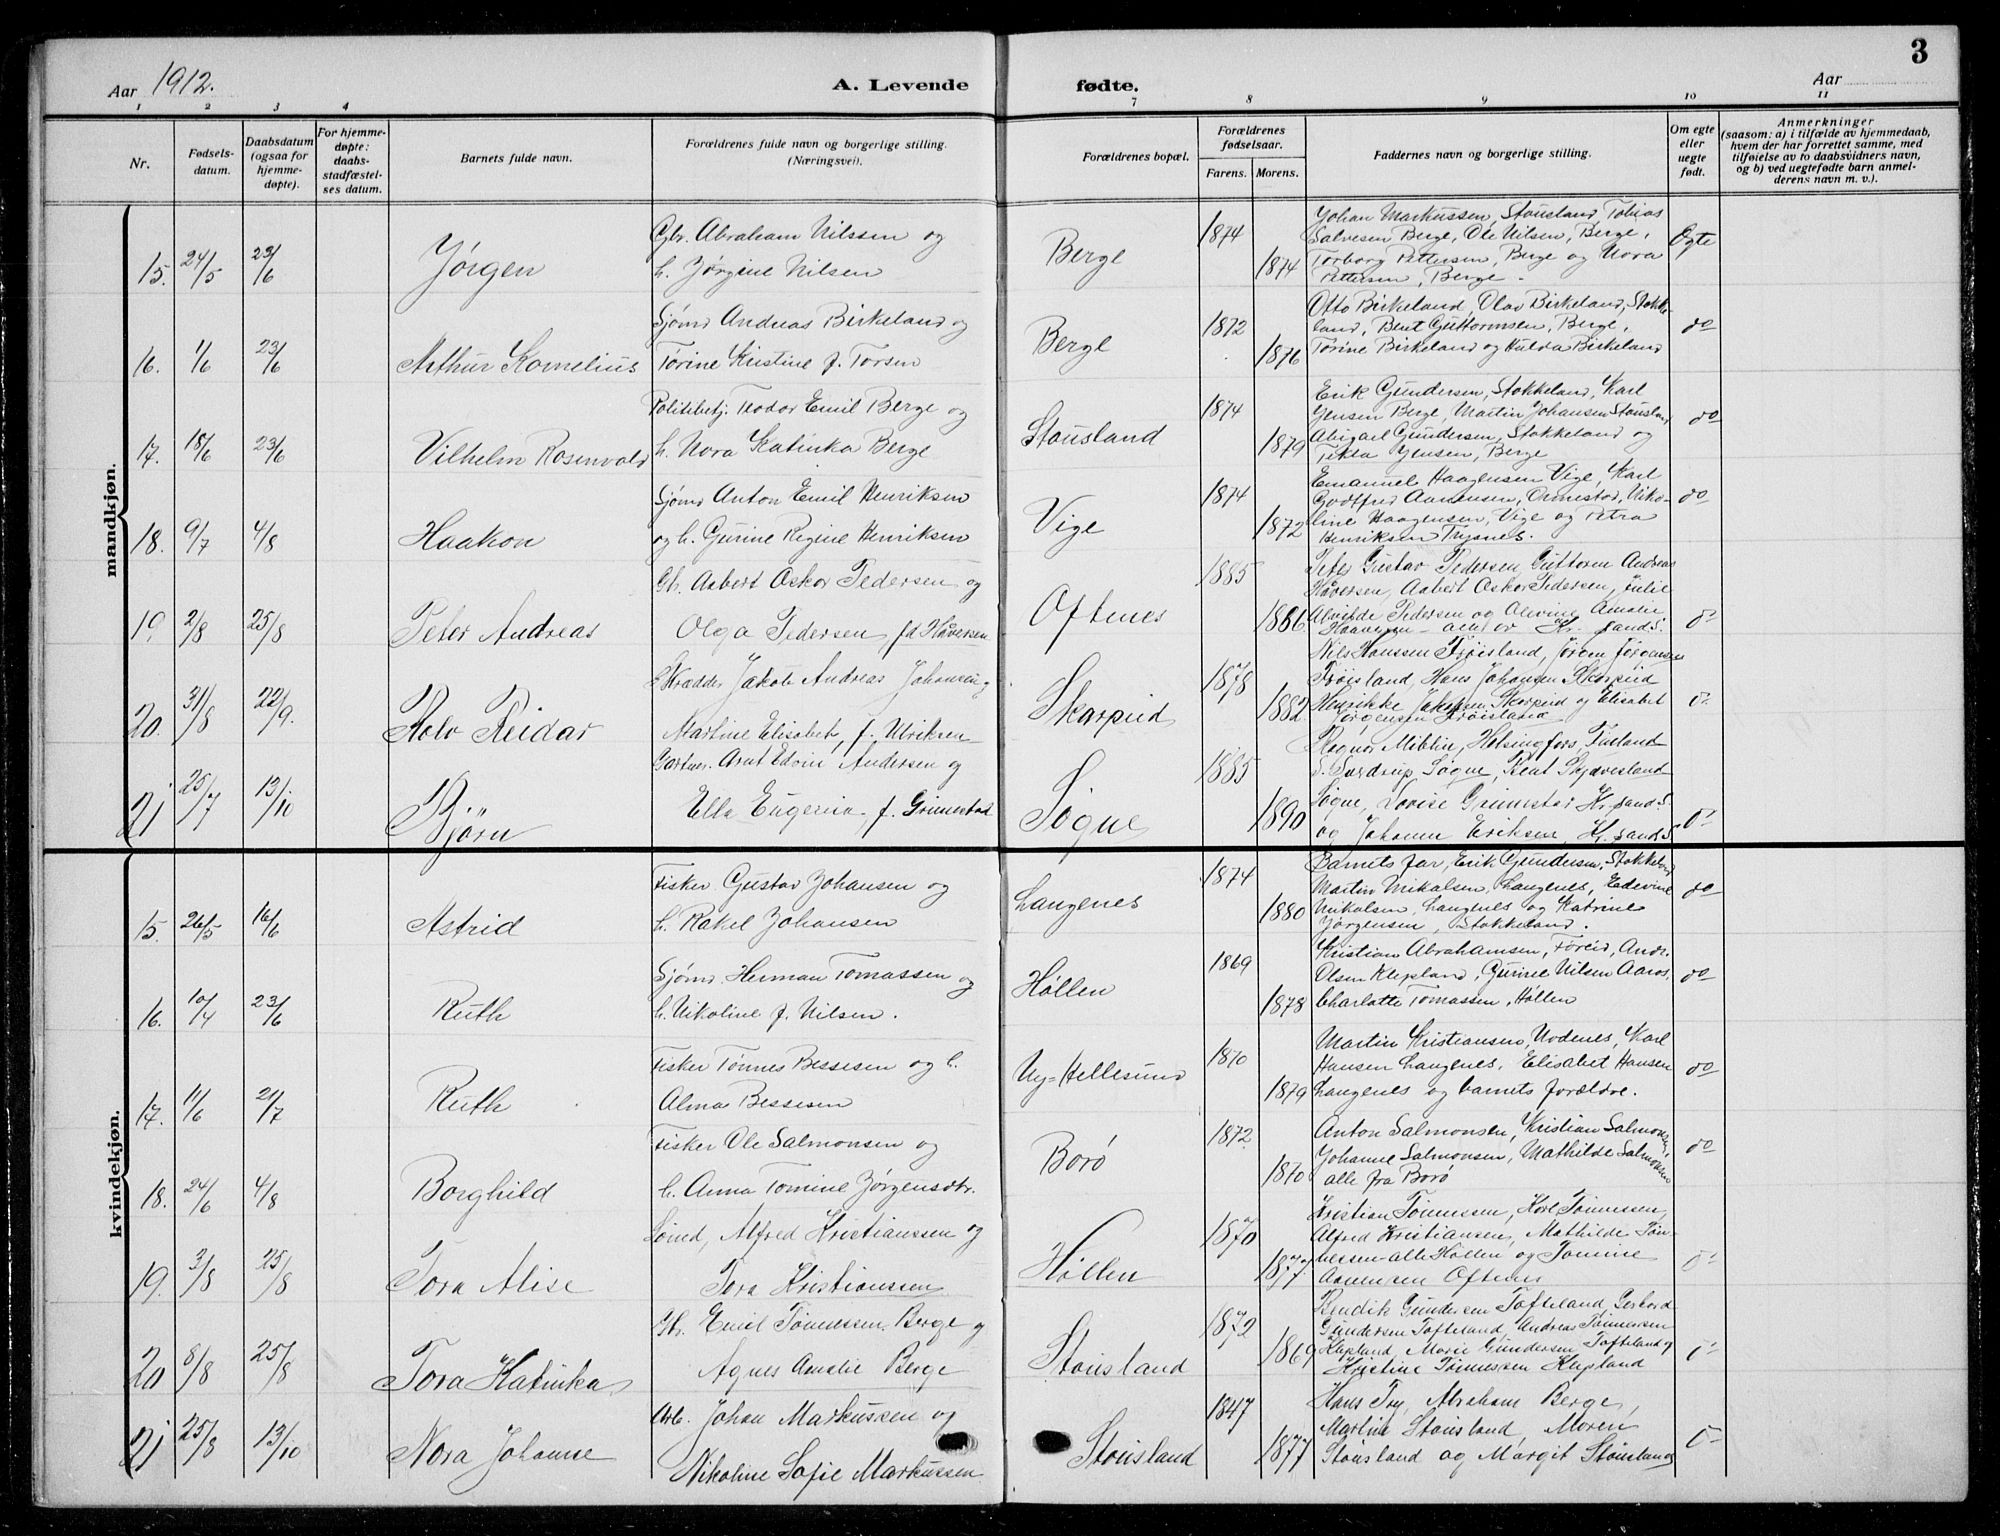 3
Aar 1912.
A. Levende fødte.
Aar
1 2 3 4 7 8 9 10 11
Nr.
Fødsels-
datum.
Daabsdatum
(ogsaa for
hjemme-
døpte).
For hjemme-
døpte:
daabs-
stadfæstel-
ses datum.
Barnets fulde navn.
Forældrenes fulde navn og borgerlige stilling.
(Næringsvei).
Forældrenes bopæl.
Forældrenes
fødselsaar.
Farens. Morens.
Faddernes navn og borgerlige stilling.
Om egte
eller
uegte
født.
Anmerkninger
(saasom: a) i tilfælde av hjemmedaab,
hvem der har forrettet samme, med
tilføielse av to daabsvidners navn,
og b) ved uegtefødte barn anmel-
derens navn m. v.).
mandkjøn.
15. 24/5 23/6 Jørgen
Gbr. Abraham Nilssen og
h. Jørgine Nilsen
Berge 1874 1874
Johan Markussen, Stousland, Tobias
Salvesen Berge, Ole Nilsen, Berge,
Torborg Pettersen, Berge og Nora
Pettersen, Berge.
Egte
16. 1/6 23/6 Arthur Kornelius
Sjømd Andreas Birkeland og
Torine Kristine f. Torsen
Berge 1872 1876
Otto Birkeland, Olav Birkeland, Stokke-
land, Bent Guttormsen, Berge,
Torine Birkeland og Hulda Birkeland
do
17. 18/6 23/6 Vilhelm Rosenvold
Politibetj. Teodor Emil Berge og
h. Nora Katinka Berge
Stousland 1874 1879
Erik Gundersen, Stokkeland, Karl
Jensen Berge, Martin Johansen Stousland
Abigael Gundersen, Stokkeland og
Tekla Jensen, Berge
do
18. 9/7 4/8 Haakon
Sjømd Anton Emil Henriksen
og h. Gurine Regine Henriksen
Vige 1874 1872
Emanuel Haagensen Vige, Karl
Godtfred Aanensen, Ormestad, Niko-
line Haagensen, Vige og Petra
Henriksen Trysnes.
do
19. 2/8 25/8 Peter Andreas
Gbr. Aabert Oskor Pedersen og
Olga Pedersen fd Håversen
Oftenes 1885 1886
Peter Gustav Pedersen, Guttorm Andreas
Håversen, Aabert Oskor Pedersen, Julie
Alvilde Pedersen og Olevine Amalie
Haaversen – alle av Kr.sand S.
do
20. 31/8 22/9. Rolv Reidar
Skrædder Jakob Andreas Johansen og
Martine Elisabet, f. Ulriksen
Skarpeid 1878 1882
Nils Hanssen Trøisland, Jørgen Jørgensen
Trøisland, Hans Johansen Skarpeid
Henrikke Jakobsen Skarpeid og Elisabet
Jørgensen Trøisland
do
21 25/7 13/10 Bjørn
Gartner. Arnt Edvin Andersen og
Ella Eugenia f. Grimestad
Søgne 1885 1890
Ragnar Miblin, Helsingfors, Finland
S. Sverdrup Søgne, Bent Skjævesland
Søgne, Lovise Grimestad Kr.sand S.
og Johanne Eriksen, Kr.sand S.
do
kvindekjøn.
15. 26/5 16/6 Astrid
Fisker Gustav Johansen og
h. Rakel Johansen
Langenes 1874 1880
Barnets far, Erik Gundersen, Stokkeland
Martin Mikalsen, Langenes, Edevine
Mikalsen, Langenes og Katrine
Jørgensen, Stokkeland.
do
16. 10/4 23/6 Ruth
Sjømd Herman Tomassen og
h. Nikoline f. Nilsen.
Høllen 1869 1878
Kristian Abrahamsen, Toreid, Andr.
Olsen Klepland, Gurine Nilsen Aaros,
Charlotte Tomassen, Høllen
do
17. 11/6 21/7 Ruth
Fisker Tønnes Bessesen og h.
Alma Bessesen
Ny-Hellesund 1870 1879
Martin Kristiansen, Nodenes, Karl
Hansen Langenes, Elisabet Hansen
Langenes og barnets forældre.
do
18. 24/6 4/8 Borghild
Fisker Ole Salmonsen og
h. Anna Tomine Jørgensdtr.
Borø 1872 1870
Anton Salmonsen, Kristian Salmonsen,
Johanne Salmonsen, Mathilde Salmonsen
alle fra Borø
do
19. 3/8 25/8 Tora Alise
Sømd, Alfred Kristianssen og
Tora Kristianssen
Høllen 1870 1877.
Kristian Tønnessen, Karl Tønnessen,
Alfred Kristiansen, Mathilde Tøn-
nessen – alle Høllen og Tomine
Aanensen Oftenes
do
20 8/8 25/8 Tora Katinka
Gbr. Emil Tønnessen Berge og
Agnes Amalie Berge
Stousland 1872 1869
Bendik Gundersen Tofteland, Gerhard
Gundersen Tofteland, Andreas Tønnessen
Klepland, Marie Gundersen Tofteland og
Kristine Tønnessen Klepland
do
21 25/8 13/10 Nora Johanne
Arb. Johan Markussen og
Nikoline Sofie Markussen
Stousland 1847 1877
Hans Try, Abraham Berge,
Martha Stousland, Moren
Stousland og Margit Stousland
do